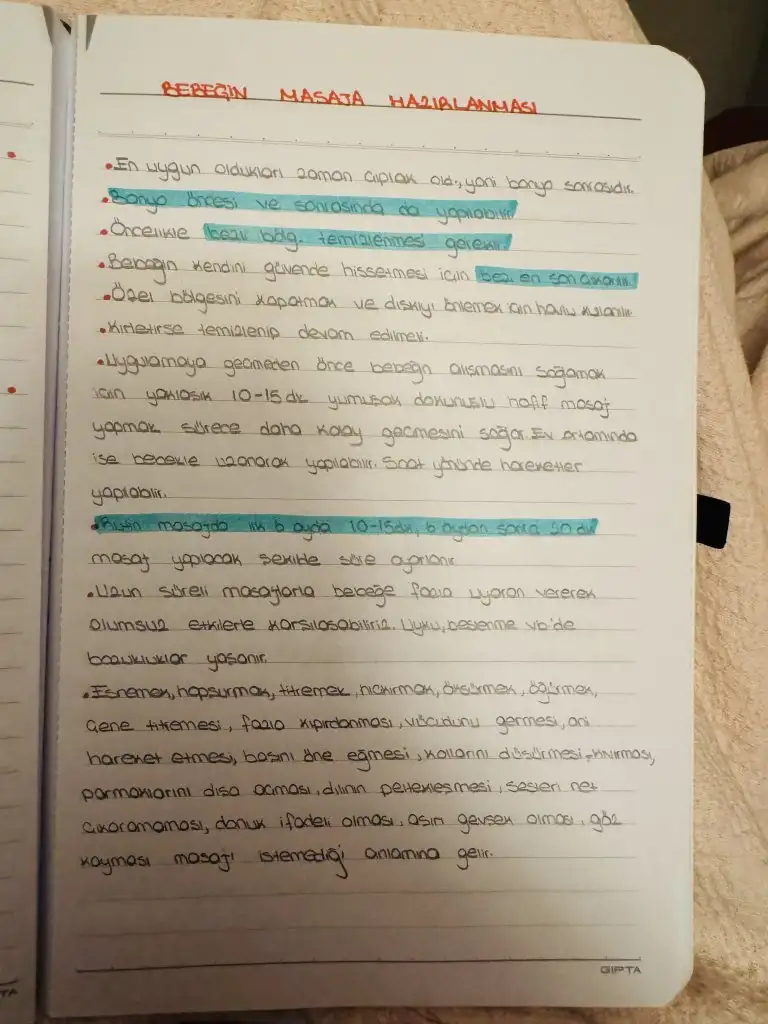 BEBEĞİN MASAJA HAZIRLANMASI
•En uygun oldukları zaman çıplak old., yani banyo sonrasıdır.
•Banyo öncesi ve sonrasında da yapılabilir.
•Öncelikle bezli bölg. temizlenmesi gerekir.
•Bebeğin kendini güvende hissetmesi için bez en son çıkarılır.
•Özel bölgesini kapatmak ve dışkıyı önlemek için havlu kullanılır.
•Kirletirse temizlenip devam edilmeli.
•Uygulamaya geçmeden önce bebeğin alışmasını sağlamak
için yaklaşık 10-15 dk yumuşak dokunuşlu hafif masaj
yapmak sürece daha kolay geçmesini sağlar. Ev ortamında
ise bebekle uzanarak yapılabilir. Saat yönünde hareketler
yapılabilir.
•Rutin masajda ilk 6 ayda 10-15dk, 6 aydan sonra 20 dk
masaj yapılacak şekilde süre ayarlanır
•Uzun süreli masajlarla bebeğe fazla uyaran vererek
olumsuz etkilerle karşılaşabiliriz. Uyku, beslenme vb'de
bozukluklar yaşanır.
•Esnemek, hapşurmak, titremek, hıçkırmak, öksürmek, öğürmek,
çene titremesi, fazla kıpırdanması, vücudunu germesi, ani
hareket etmesi, başını öne eğmesi, kollarını düşürmesi, kıvırması,
parmaklarını dışa açması, dilinin peltekleşmesi, sesleri net
çıkaramaması, donuk ifadeli olması, aşırı gevşek olması, göz
kayması masajı istemediği anlamına gelir.
GIPTA
TA